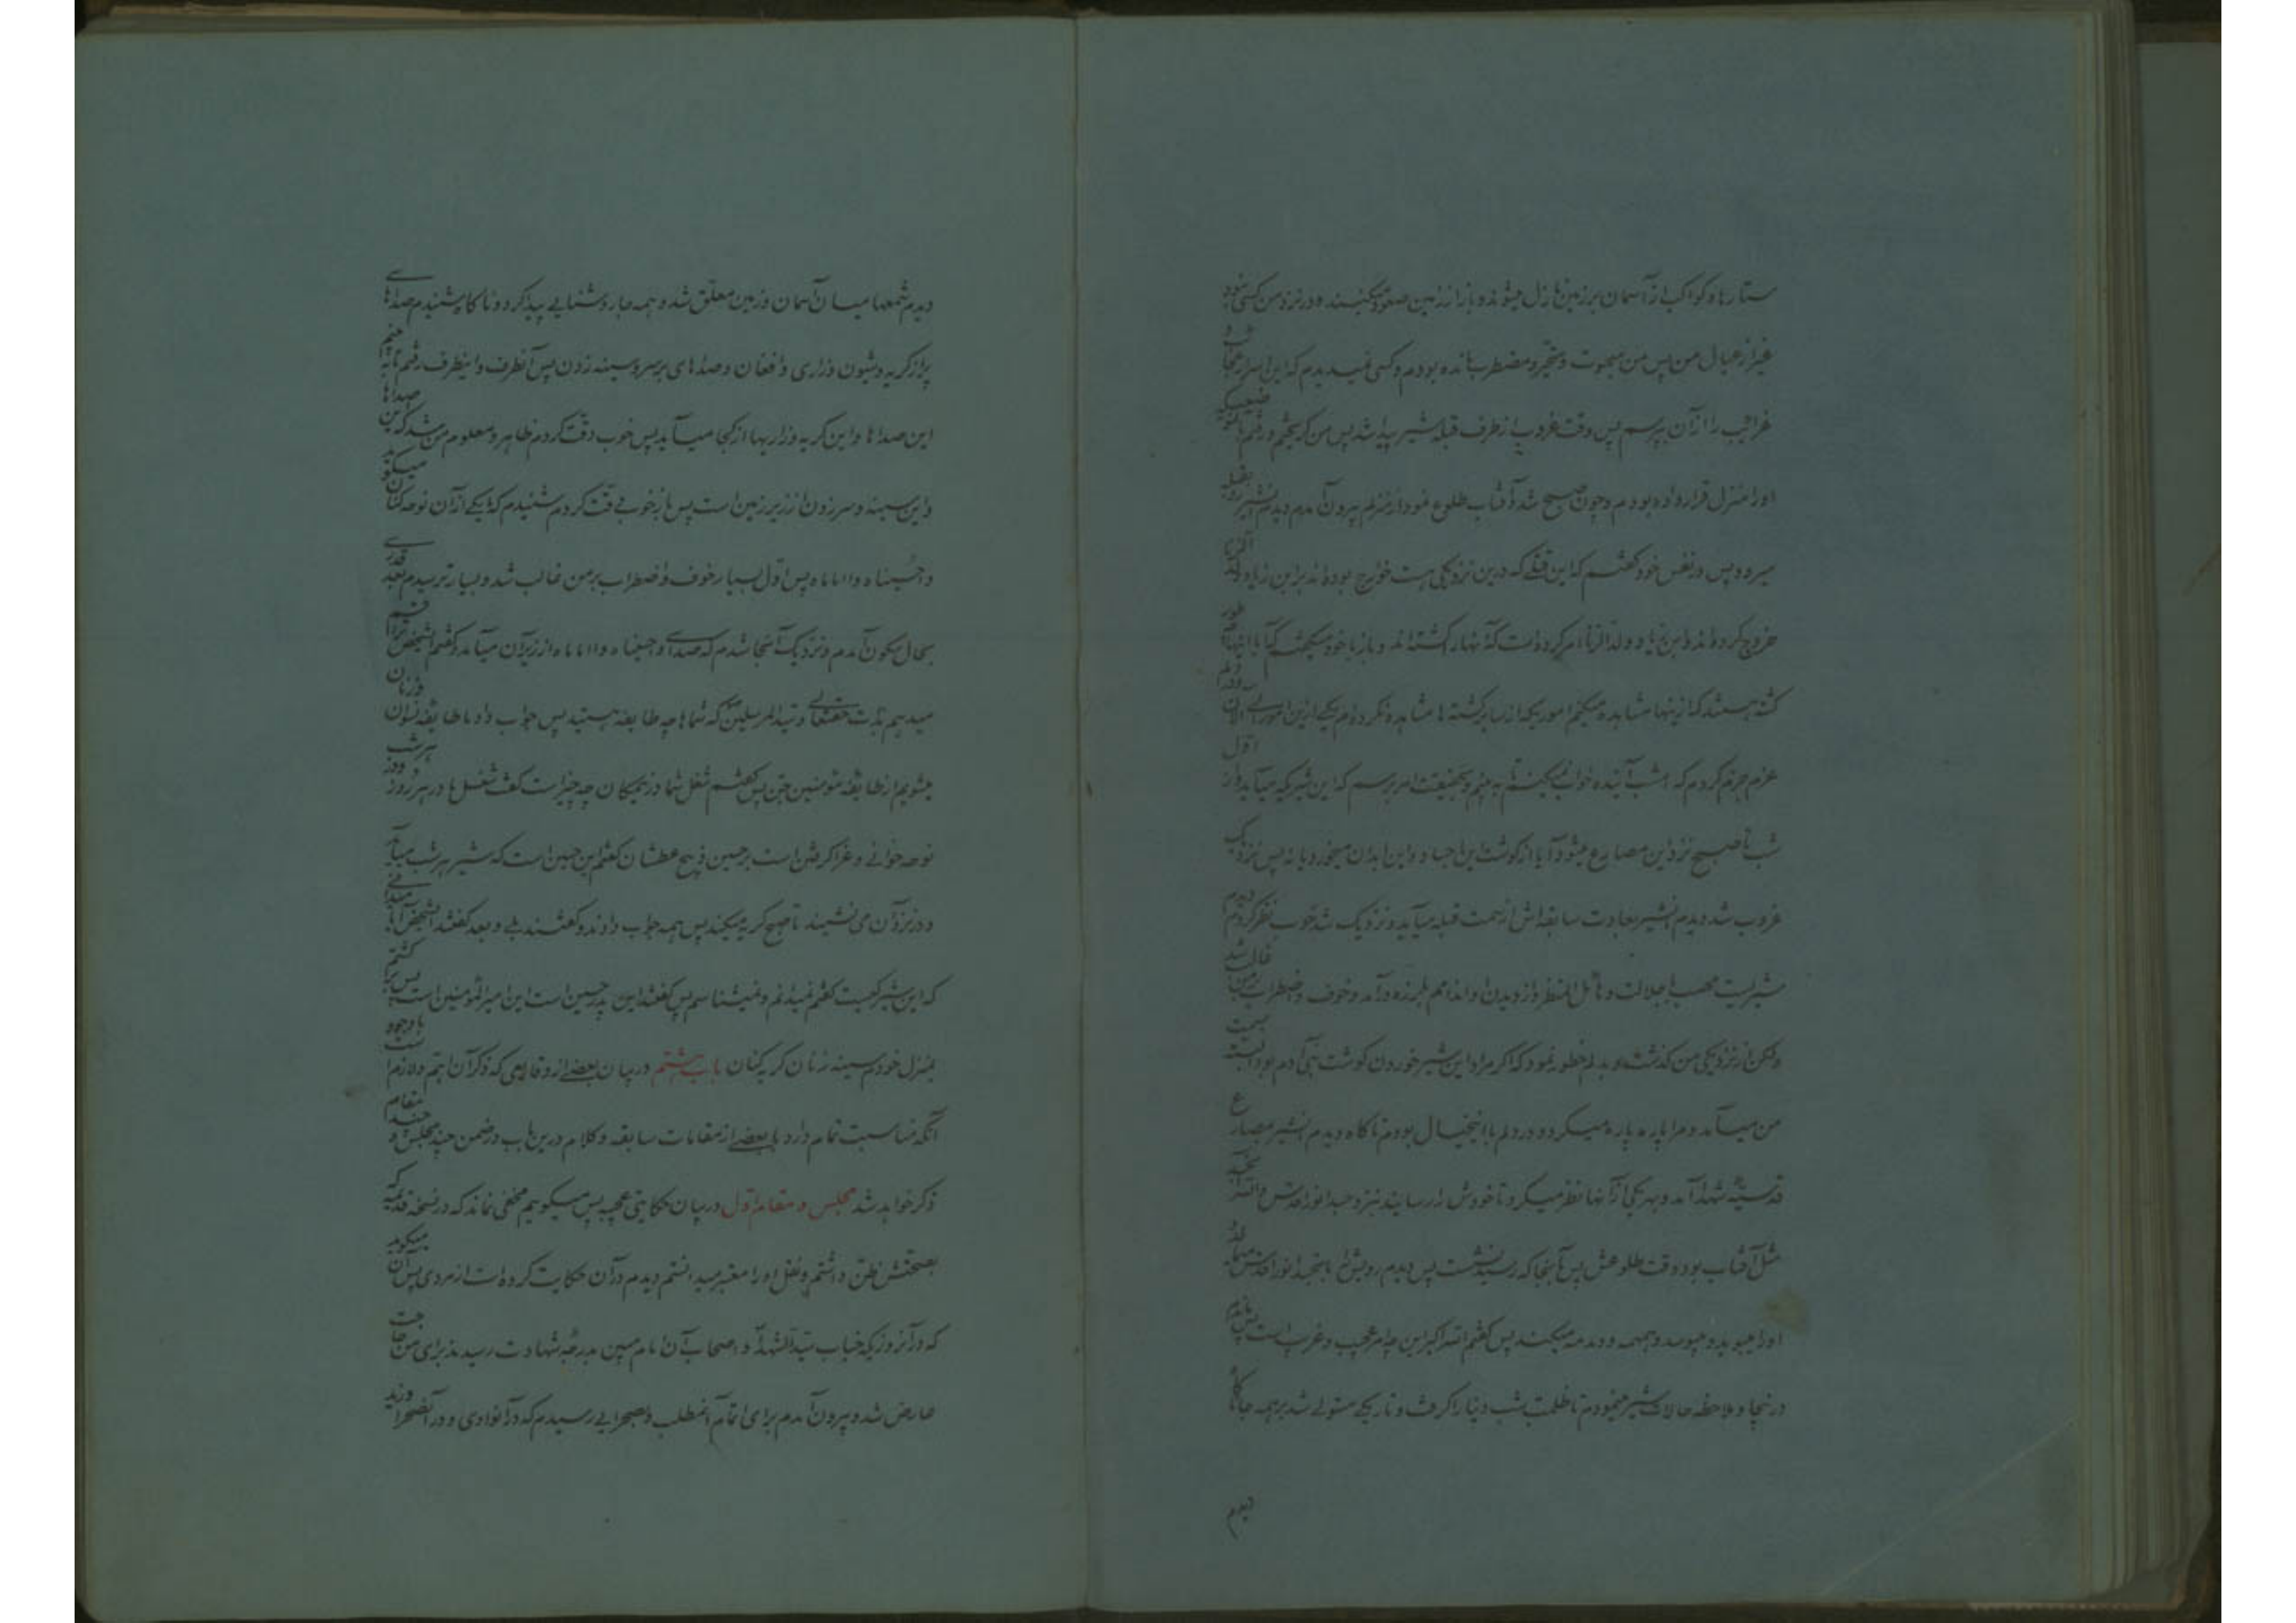 ستارها و کواکب از آسمان بر زمین نازل میشوند و باز از زمین صعود میکنند و در نزد من کسی نبود
غیر از عیال من پس من مبهوت و متحیر و مضطرب مانده بودم و کسی نمیدیدم که این اسرار عجائب و
غرائب را از آن بپرسم پس وقت غروب از طرف قبله شیر پیدا شد پس من گریختم و رفتم
او را منزل قرار داده بودم و چون صبح شد و آفتاب طلوع نمود از منزلم بیرون آمدم دیدم شیر
میرود پس در نفس خود گفتم که این قتلی که درین نزدیکی است خوارج بوده‌اند بر ابن زیاد ولد الزنا
خروج کرده‌اند و ابن زیاد ولد الزنا امر کرده است که آنها را کشته‌اند و باز با خود میگفتم که آیا اینها چه طور
کشته هستند که از اینها مشاهده میکنم اموریکه از سایر کشته‌ها مشاهده نکرده‌ام
عزم جزم کردم که امشب آینده خواب نمیکنم تا به بینم و بحقیقت امر برسم که این شیریکه میآید از اول
شب تا صبح نزد این مصارع میشود آیا از گوشت این اجساد و این ابدان میخورد یا نه پس نزدیک
غروب شد دیدم شیر بعادت سابقه‌اش از سمت قبله میآید و نزدیک شد خوب نظر کردم دیدم
شیریست مهیب الجلالت و هائل المنظر و از دیدن او اندامم بلرزه درآمد و خوف و اضطراب بر من غالب شد
ولکن از نزدیکی من گذشت و بدلم خطور نمود که اگر مراد این شیر خوردن گوشت بنی آدم بود البته بسمت
من میآمد و مرا پاره پاره میکرد و در دلم با این خیال بودم ناگاه دیدم شیر بمصارع
قدسیه شهدا آمد و بهر یکی از آنها نظر میکرد تا خودش را رسانید نزد جسد انور اقدس
مثل آفتاب بود وقت طلوعش پس تا آنجا که رسید نشست پس دیدم رویش را بانجسد انور اقدس میمالد
او را میبوید و میبوسد و همهمه و دمدمه میکند پس گفتم الله اکبر این چه امر عجیب و غریب است پس ماندم
در آنجا و ملاحظه حالات شیر مینمودم تا ظلمت شب دنیا را گرفت و تاریکی مستولی شد بر همه جا ناگاه
دیدم
دیدم شمعها میان آسمان و زمین معلق شد و همه جا روشنایی پیدا کرد و ناگاه شنیدم صداهای
پر از گریه و شیون و زاری و افغان و صداهای بر سر و سینه زدن پس آنطرف و اینطرف رفتم تا به بینم
این صداها و این گریه و زاریها از کجا میآید پس خوب دقت کردم ظاهر و معلوم من شد که این صداها
و این سینه و سر زدن از زیر زمین است پس باز خوب دقت کردم شنیدم که یکی از آن نوحه کنان میگوید
وا حسیناه وا اماماه پس اول بسیار خوف و اضطراب بر من غالب شد و بسیار ترسیدم بعد قدری
بحال سکون آمدم و نزدیک آنجا شدم که صدای وا حسیناه وا اماماه از زیر آن میآمد و گفتم ای شخص ترا قسم
میدهم بذات حقتعالی و سید المرسلین که شماها چه طایفه هستید پس جواب داد ما طایفه نسوان و زنان
میشویم از طایفه مؤمنین جن پس گفتم شغل شما در اینمکان چه چیز است گفت شغل ما در هر روز و هر شب
نوحه خوانی و عزا کردن است بر حسین ذبیح عطشان گفتم این حسین است که شیر هر شب میآید
و در نزد آن می‌نشیند تا صبح گریه میکند پس همه جواب دادند و گفتند بلی و بعد گفتند ای شخص آیا میدانی
که این شیر کیست گفتم نمیدانم و نمیشناسم پس گفتند این پدر حسین است این امیر المؤمنین است پس برگشتم
بمنزل خودم سینه زنان گریه کنان باب هشتم در بیان بعضی از وقایعی که ذکر آن اهم و لازم است با وجود
آنکه مناسبت تمام دارد با بعضی از مقامات سابقه و کلام درین باب در ضمن چند مجلس و چند مقام
ذکر خواهد شد مجلس و مقام اول در بیان حکایتی عجیبه پس میگویم مخفی نماند که در نسخه قدیمه که
بصحتش ظن داشتم و نقل او را معتبر میدانستم دیدم در آن حکایت کرده است از مردی پس آن میگوید
که در آنروزیکه جناب سید الشهدآء و اصحاب آن امام مبین بدرجه شهادت رسیدند برای من حاجت
عارض شد و بیرون آمدم برای اتمام آنمطلب و بصحرایی رسیدم که در آنوادی و در آنصحرا